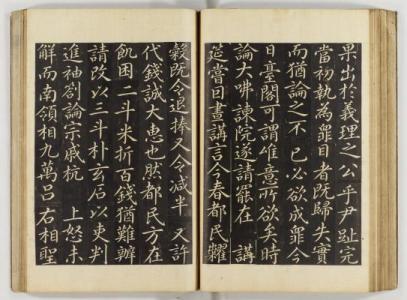 果出於義理之公乎尹趾完
當初執為罪目者既歸失實
而猶論之不已必欲成罪今
日臺閣可謂惟意所欲矣時
論大咈諫院遂請罷在 講
筵嘗因晝講言今春都民糶
穀既令退捧又令減半 又許
代錢誠大惠也然都民方在
飢困二斗米折百錢猶難辦
請改以三斗朴玄石以吏判
進袖劄論宗戚杭 上怒未
解而南領相九萬呂右相聖